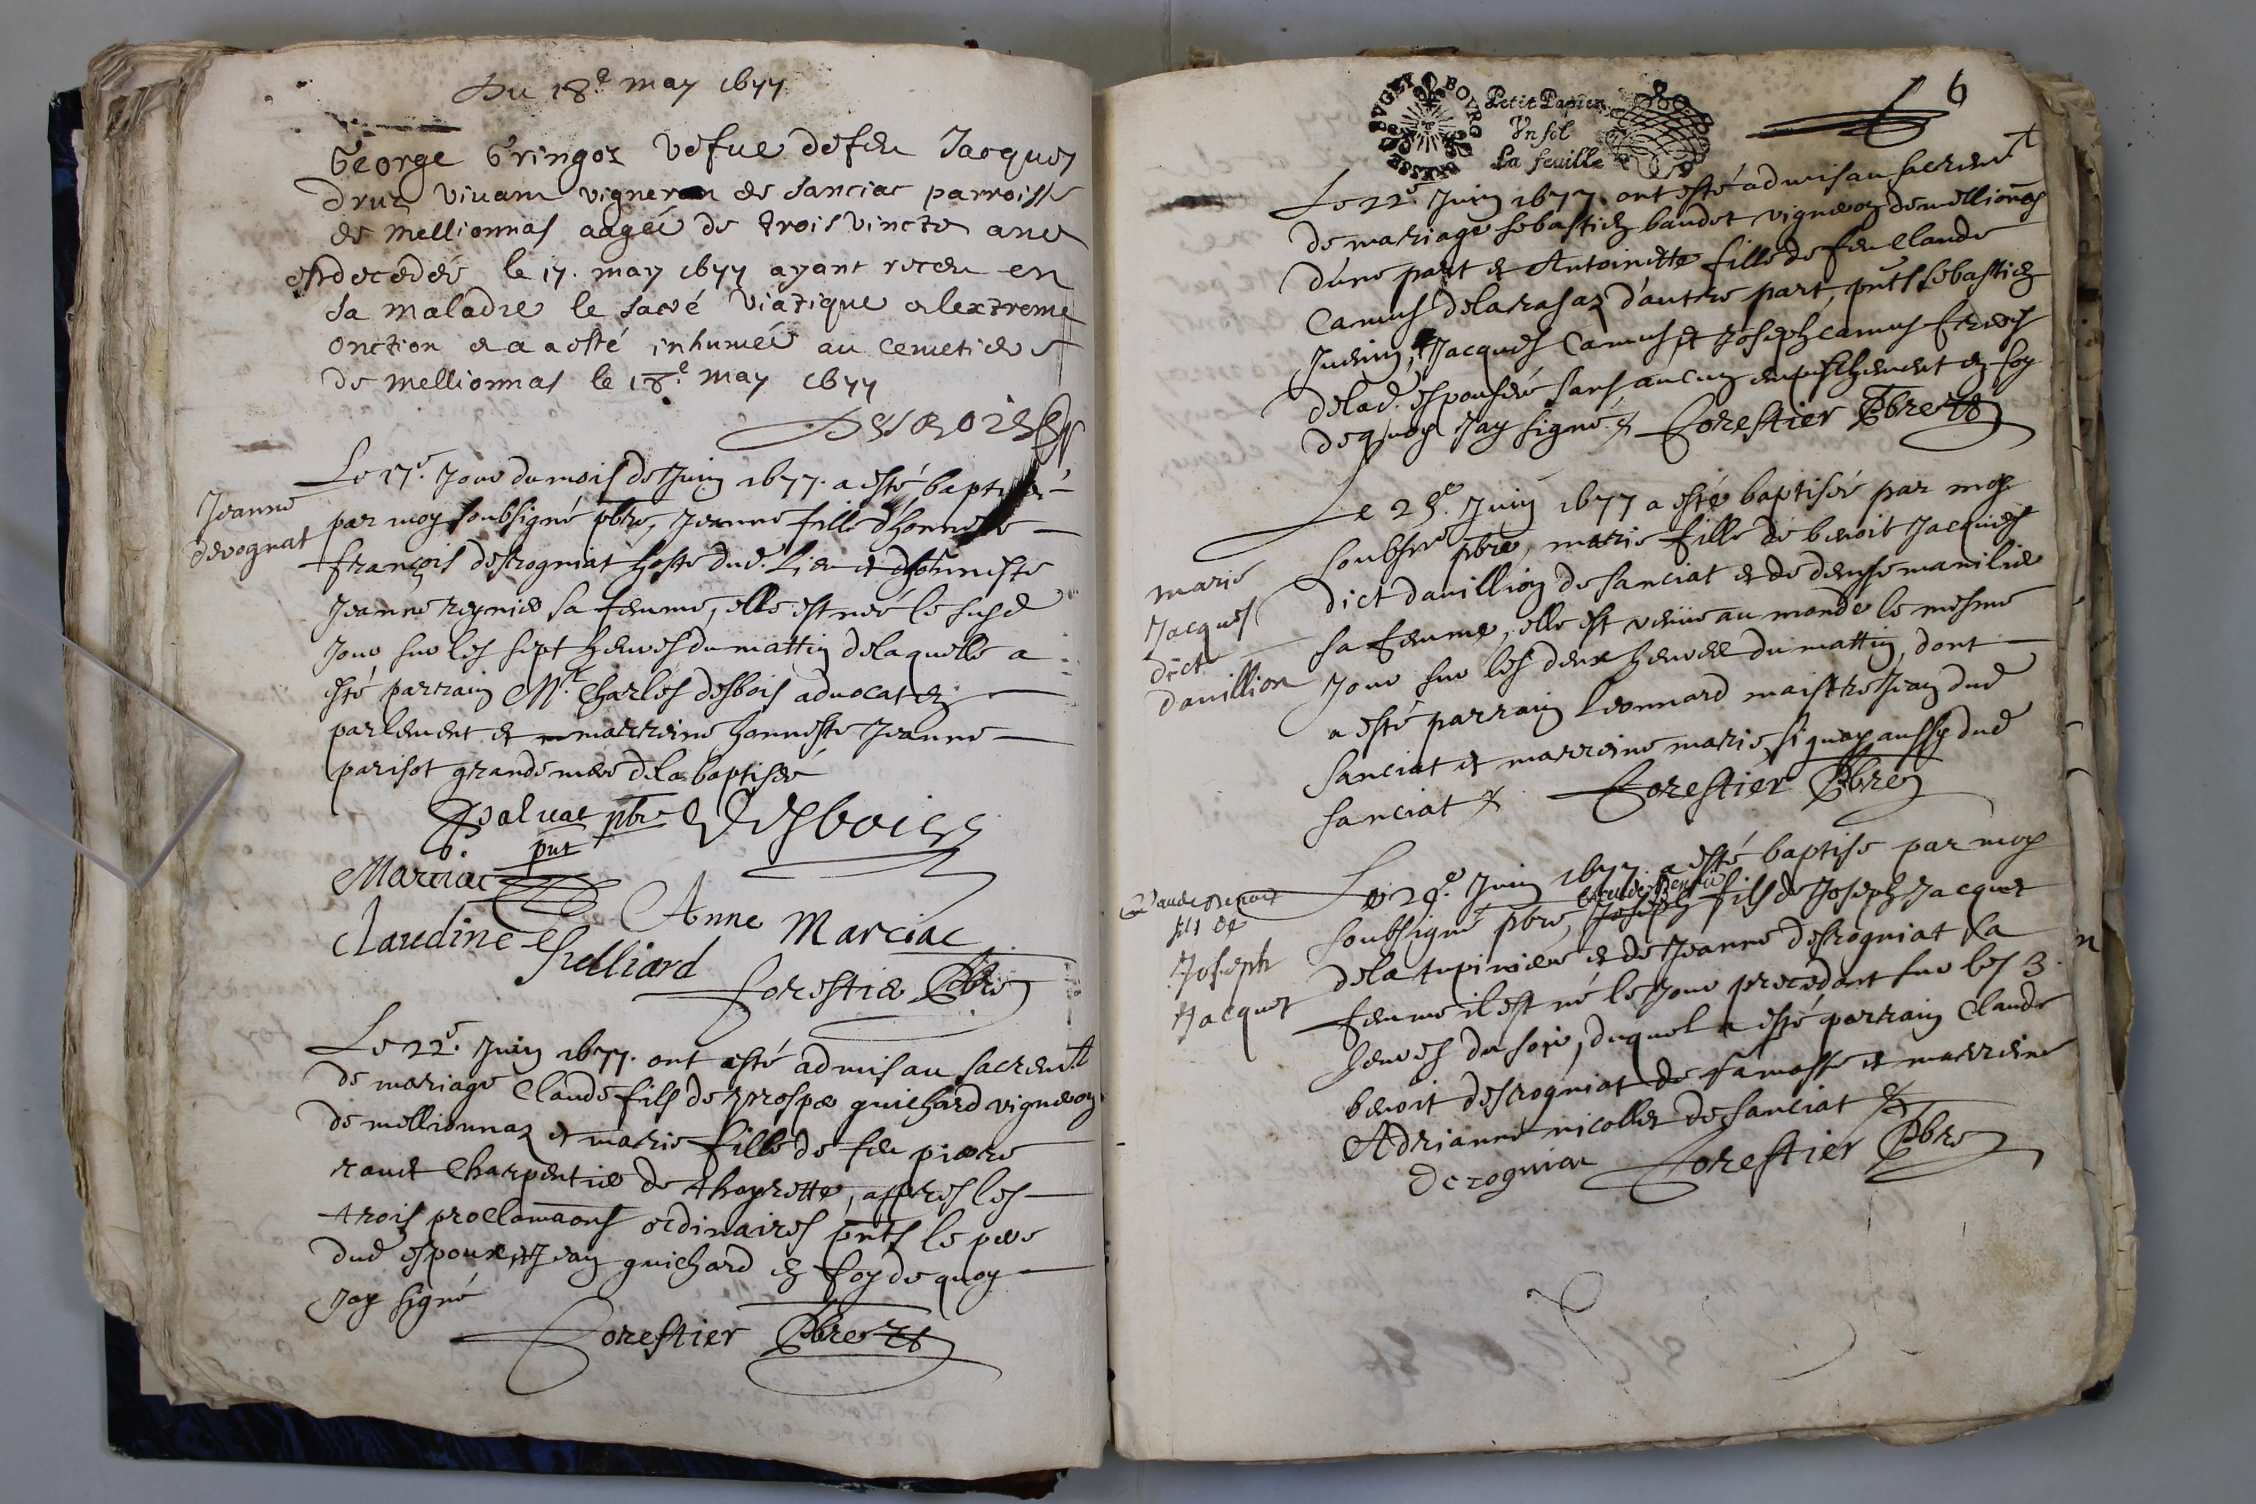 Du 18.e may 1677
George Gringoz vefue de feu Jacques
druz vivant vigneron de sanciac parroisse
de mellionnas aagée de trois vincts ans
est decedée le 17. may 1677 ayant receu en
sa maladie le sacré viatique et lextreme
onction et a esté inhumée au cemetiere
de mellionnas le 18.e may 1677
Desbois
Jeanne
derognat
Le 17.e Jour du mois de Juin 1677. a esté baptisée
par moy soubsigné pbre, Jeanne fille d'honneste
françois desrogniat hoste dud. lieu et d'honneste
Jeanne reynier sa femme, elle est née le susd
Jour sur les sept heures du mattin de laquelle a
esté parrain Mr. Charles desbois advocat en
parlement et marreine honneste Jeanne
parisot grande mere de la baptisée
pbre Desbois
pnt
Marciac
Anne Marciac
Claudine
Forestier Pbre
Le 22.e Juin 1677. ont esté admis au sacremt
de mariage Claude fils de prosper guichard vigneron
de mellionnaz et marie fille de feu pierre
ravet Charpentier de thoyrette, appres les
trois proclamaons ordinaires pnts le pere
dud espoux et Jean guichard en foy de quoy
Jay signé
Forestier Pbre
BOURG BRESSE BUGEY
Petit Papier
Vn sol
La feuille
6
Le 22.e Juin 1677. ont esté admis au sacremt
de mariage sebastien baudet vigneron de mellionas
d'une part et Antoinette fille de feu Claude
Camus de la rasaz d'autre part, pnts sebastien
Jacques Camus et Joseph camus freres
de lad. espousée sans aucun empeschement en foy
de quoy Jay signé Forestier Pbre
marie
Jacques
dict
davillion
Le 25.e Juin 1677 a esté baptisée par moy
soubsne pbre, marie fille de benoit Jacques
dict davillion de sanciat et de denyse manilier
sa femme, elle est venue au monde le mesme
Jour sur les deux heures du mattin, dont
a esté parrain Leonnard maistre Jean dud
sanciat et marreine marie signay aussy dud
sanciat Forestier Pbre
Claude Benoit
fils de
Joseph
Jacquet
Le 29.e Juin 1677 a esté baptise par moy
Claude Benoit
soubsigné pbre, Joseph fils de Joseph Jacquet
de la tupiniere et de Jeanne desrogniat sa
femme il est né le Jour precedant sur les 3.
heures du soir, duquel a esté parrain Claude
benoit desrogniat de ramasse et marreine
Adrianne nicollet de sanciat
Derogniat Forestier Pbre